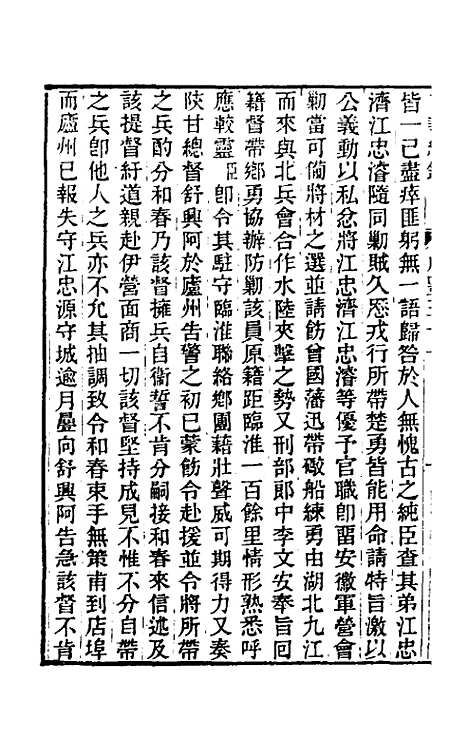 皆一已盡瘁匪躬無一語歸咎於人無愧古之純臣查其弟江忠
濟江忠濬隨同勦賊久悉戎行所帶楚勇皆能用命請特旨激以
公義動以私忿將江忠濟江忠濬等優予官職卽留安徽軍營會
勦當可備將材之選並請飭曾國藩迅帶礮船練勇由湖北九江
而來與北兵會合作水陸夾擊之勢又刑部郎中李文安奉旨回
籍督帶鄉勇協辦防勦該員原籍距臨淮一百餘里情形熟悉呼
應較靈臣卽令其駐守臨淮聯絡鄉團藉壯聲威可期得力又奏
陝甘總督舒興阿於廬州告警之初已蒙飭令赴援並令將所帶
之兵酌分和春乃該督擁兵自衞誓不肯分嗣接和春來信述及
該提督紆道親赴伊營面商一切該督堅持成見不惟不分自帶
之兵卽他人之兵亦不允其抽調致令和春束手無策甫到店埠
而廬州已報失守江忠源守城逾月曡向舒興阿告急該督不肯